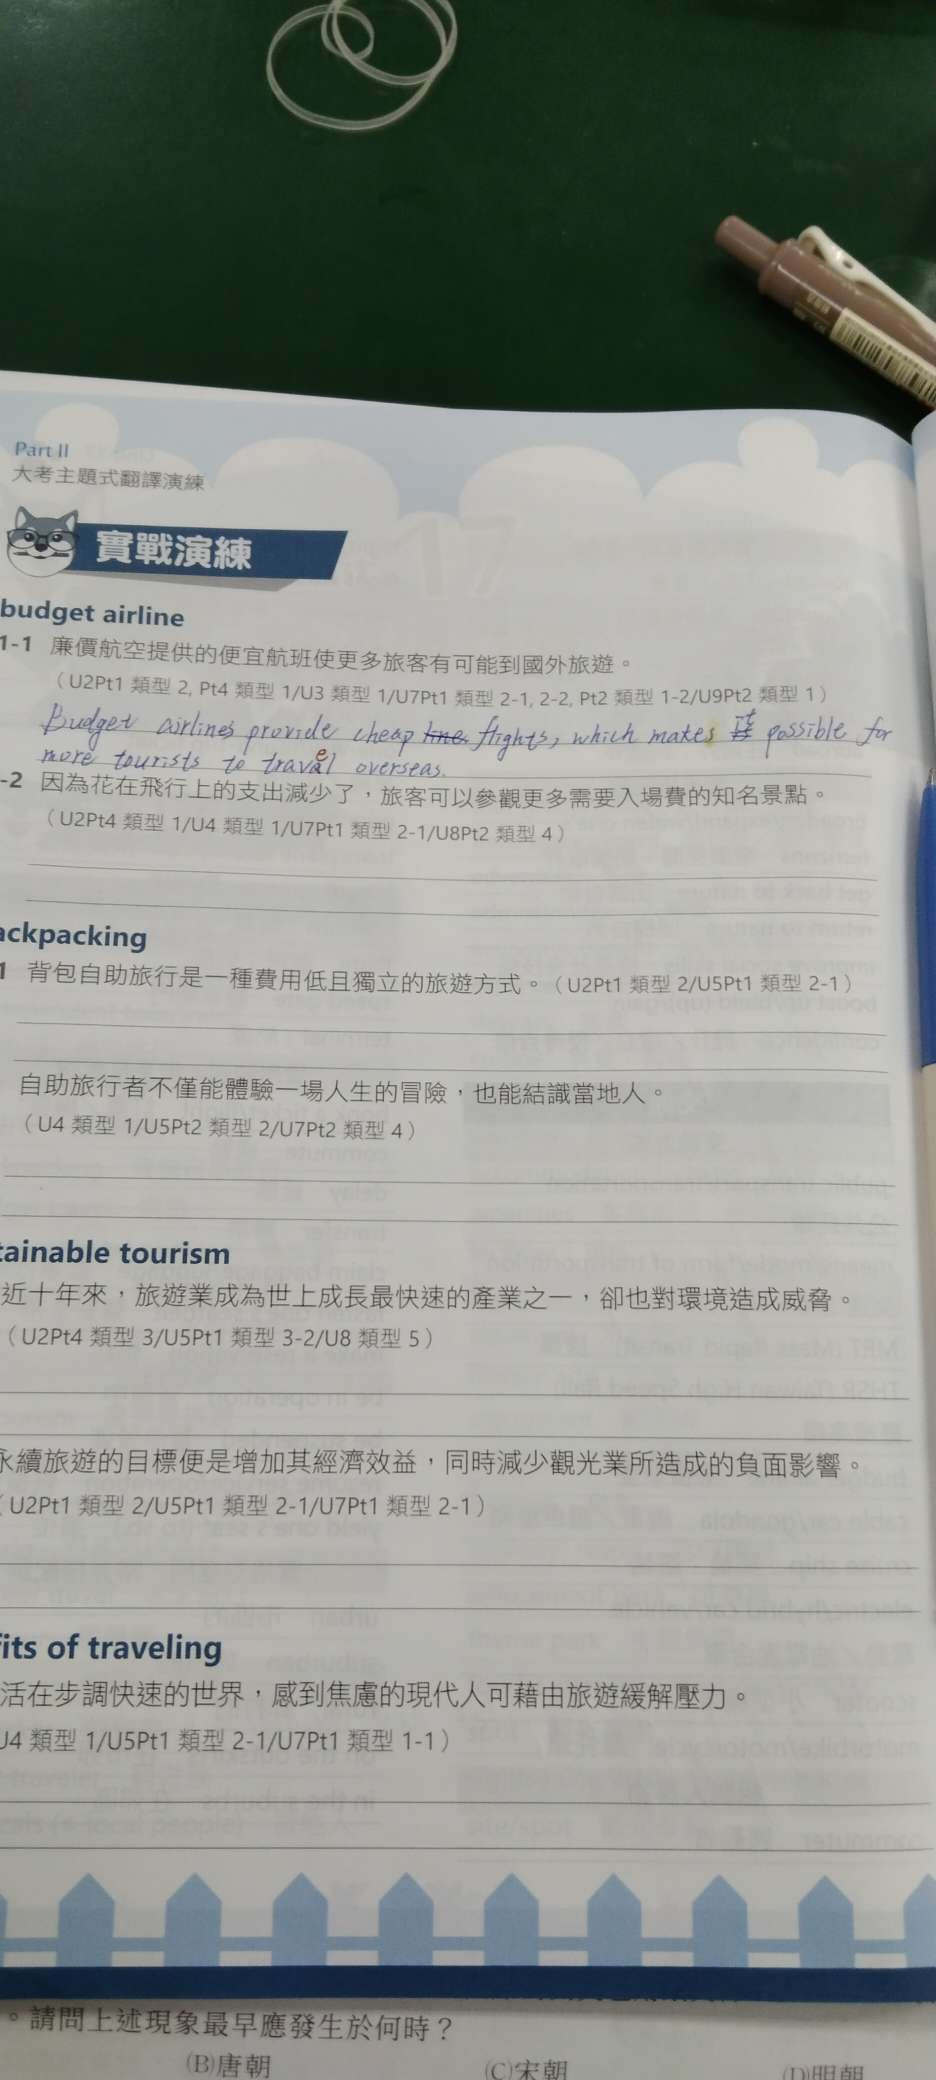 Part II
大考主題式翻譯演練
實戰演練
budget airline
1-1 廉價航空提供的便宜航班使更多旅客有可能到國外旅遊。
（U2Pt1 類型 2, Pt4 類型 1/U3 類型 1/U7Pt1 類型 2-1, 2-2, Pt2 類型 1-2/U9Pt2 類型 1）
Budget airlines provide cheap flights, which makes it possible for
more tourists to travel overseas.
-2 因為花在飛行上的支出減少了，旅客可以參觀更多需要入場費的知名景點。
（U2Pt4 類型 1/U4 類型 1/U7Pt1 類型 2-1/U8Pt2 類型 4）
ackpacking
1 背包自助旅行是一種費用低且獨立的旅遊方式。（U2Pt1 類型 2/U5Pt1 類型 2-1）
自助旅行者不僅能體驗一場人生的冒險，也能結識當地人。
（U4 類型 1/U5Pt2 類型 2/U7Pt2 類型 4）
tainable tourism
近十年來，旅遊業成為世上成長最快速的產業之一，卻也對環境造成威脅。
（U2Pt4 類型 3/U5Pt1 類型 3-2/U8 類型 5）
永續旅遊的目標便是增加其經濟效益，同時減少觀光業所造成的負面影響。
（U2Pt1 類型 2/U5Pt1 類型 2-1/U7Pt1 類型 2-1）
fits of traveling
活在步調快速的世界，感到焦慮的現代人可藉由旅遊緩解壓力。
U4 類型 1/U5Pt1 類型 2-1/U7Pt1 類型 1-1）
。請問上述現象最早應發生於何時？
(B)唐朝 (C)宋朝 (D)明朝